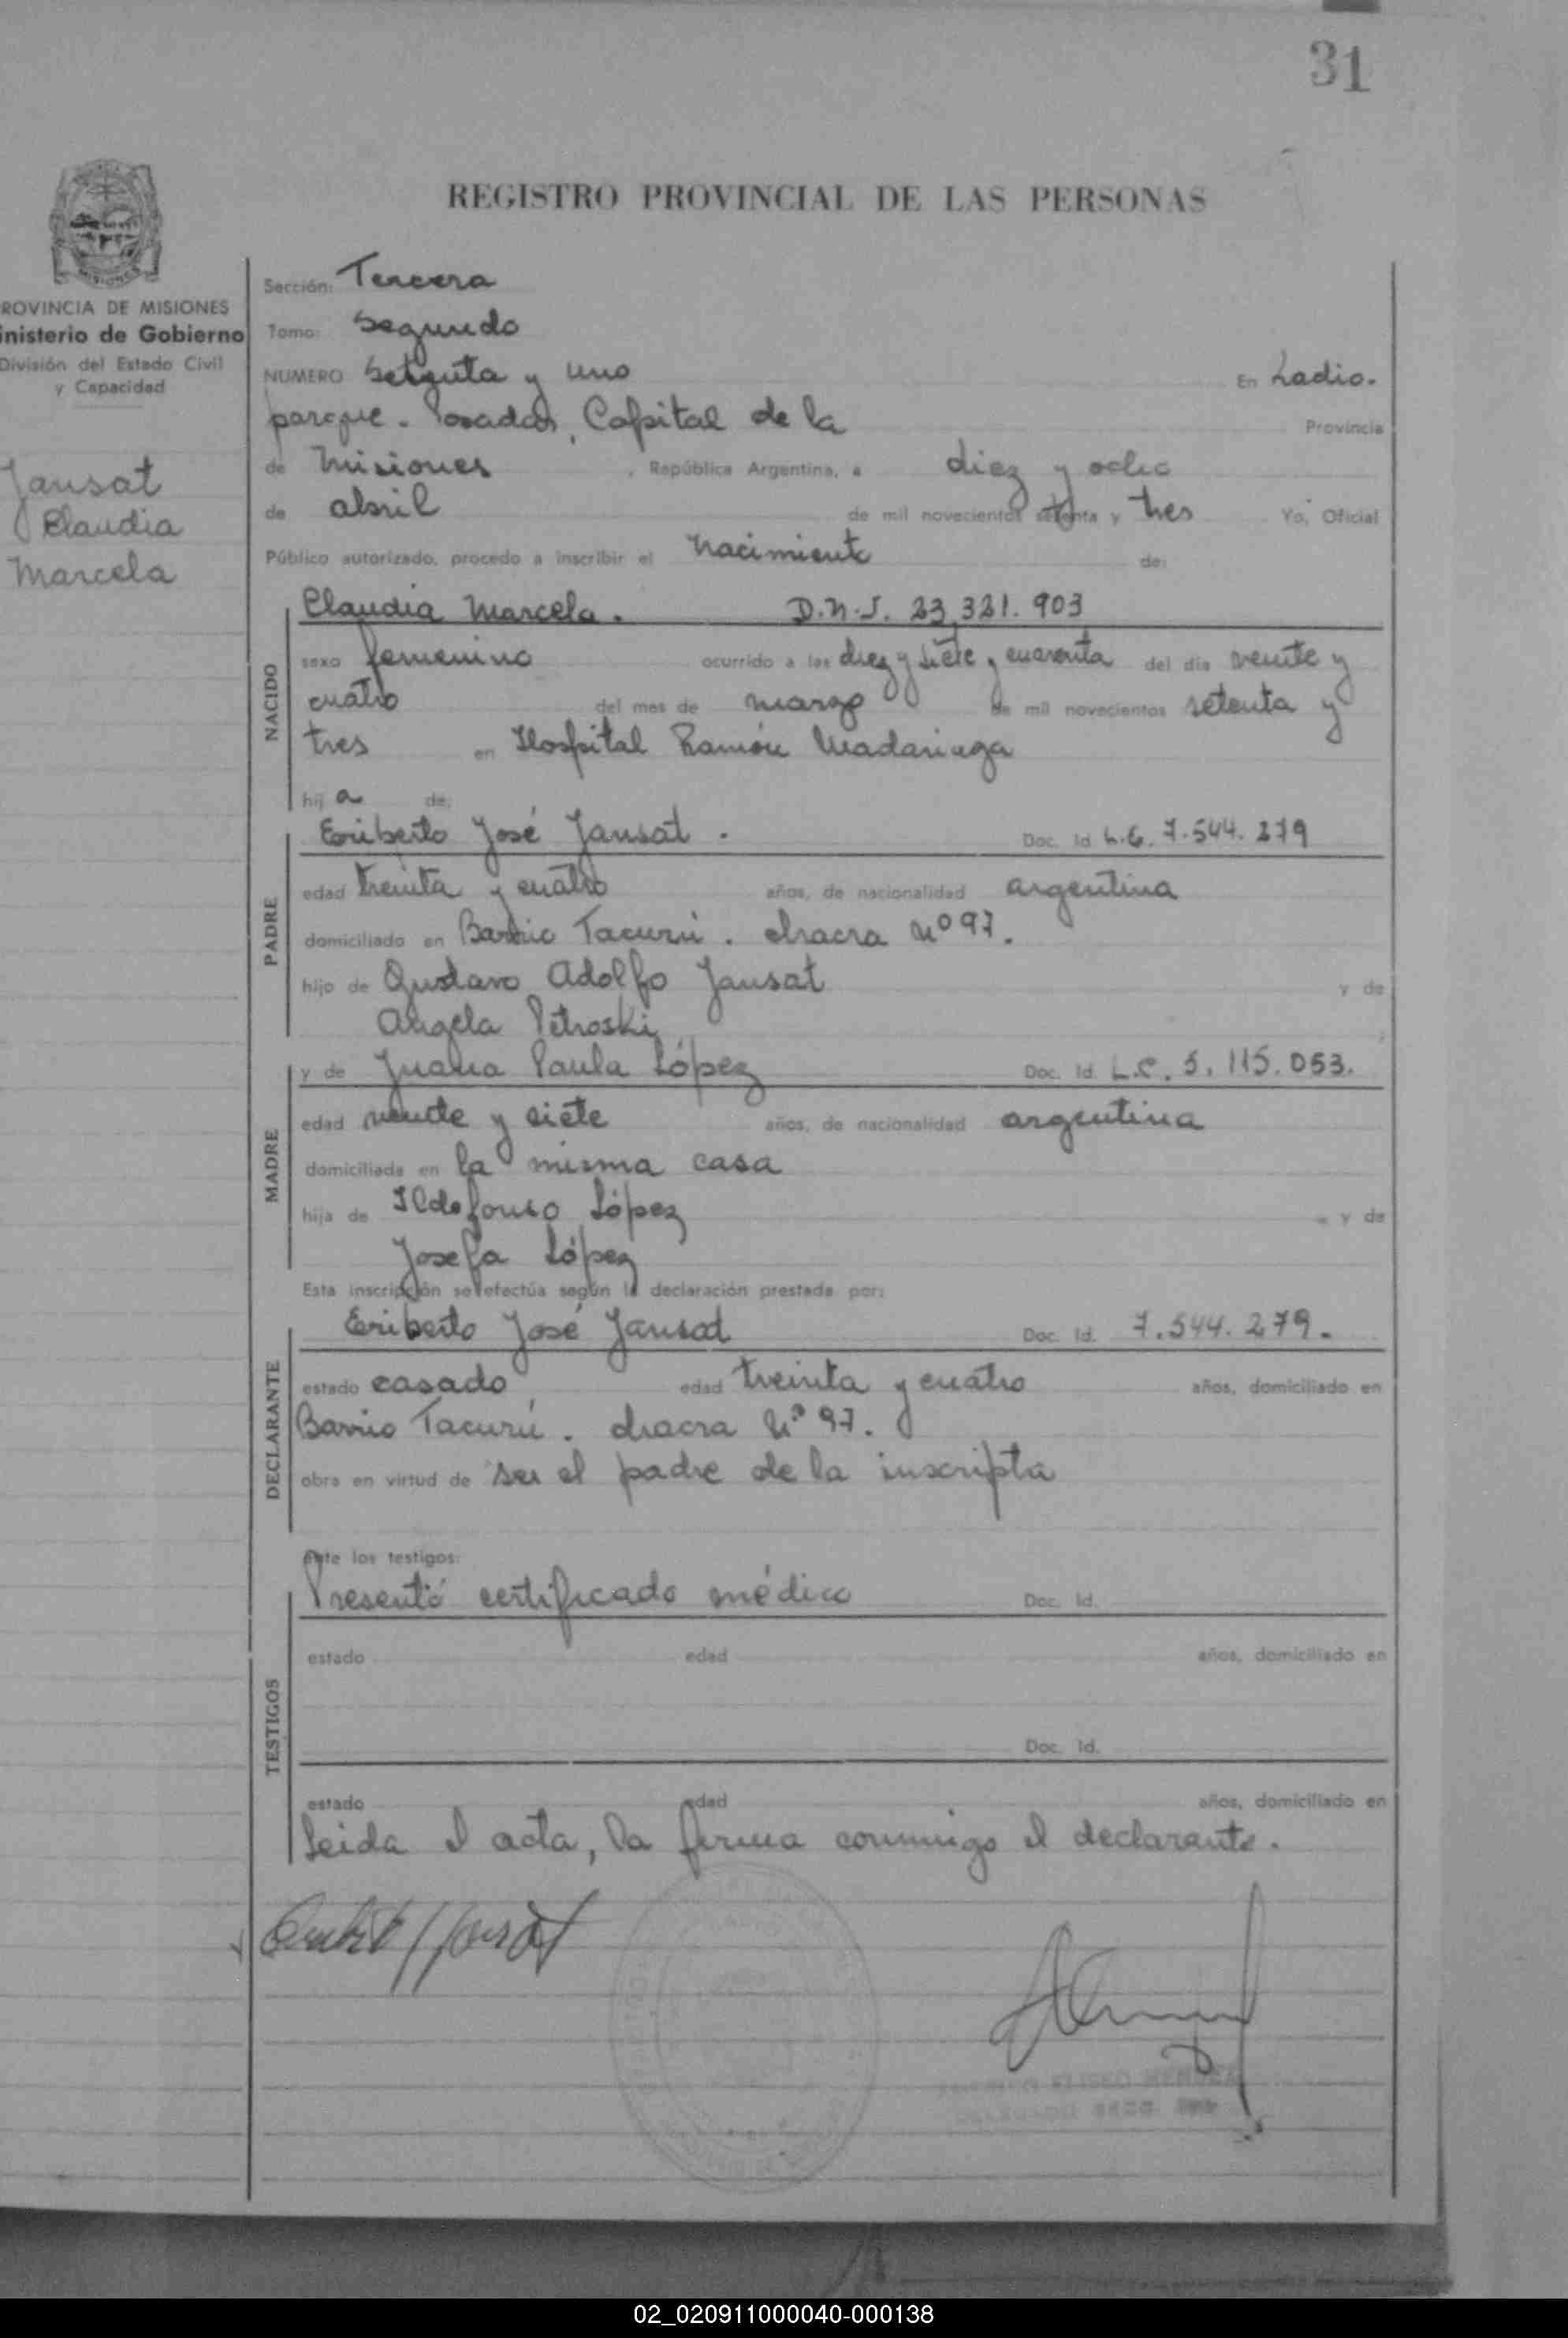 31
REGISTRO PROVINCIAL DE LAS PERSONAS
ROVINCIA DE MISIONES
inisterio de Gobierno
División del Estado Civil
y Capacidad
Jausat
Claudia
Marcela
Sección: Tercera
Tomo: Segundo
NUMERO Setenta y uno En Ladio.
parque. Posadas, Capital de la Provincia
de Misiones , República Argentina, a diez y ocho
de abril de mil novecientos setenta y tres Yo, Oficial
Público autorizado, procedo a inscribir el nacimiento de:
NACIDO
Claudia Marcela. D.N.I. 23.321.903
sexo femenino ocurrido a las diez y siete y cuarenta del día veinte y
cuatro del mes de marzo de mil novecientos setenta y
tres en Hospital Ramón Madariaga
hij a de:
PADRE
Eriberto José Jausat. Doc. Id. L.E. 7.544.279
edad treinta y cuatro años, de nacionalidad argentina
domiciliado en Barrio Tacurú. chacra nº 97.
hijo de Gustavo Adolfo Jausat y de
Angela Petroski
MADRE
y de Juana Paula López Doc. Id. L.C. 5.115.053.
edad veinte y siete años, de nacionalidad argentina
domiciliada en la misma casa
hija de Ildefonso López y de
Josefa López
Esta inscripción se efectúa según la declaración prestada por:
DECLARANTE
Eriberto José Jausat Doc. Id. 7.544.279.
estado casado edad treinta y cuatro años, domiciliado en
Barrio Tacurú. chacra Nº 97.
obra en virtud de ser el padre de la inscripta
Ante los testigos:
TESTIGOS
Presentó certificado médico Doc. Id.
estado edad años, domiciliado en
Doc. Id.
estado edad años, domiciliado en
Leida el acta, la firma conmigo el declarante.
02_020911000040-000138